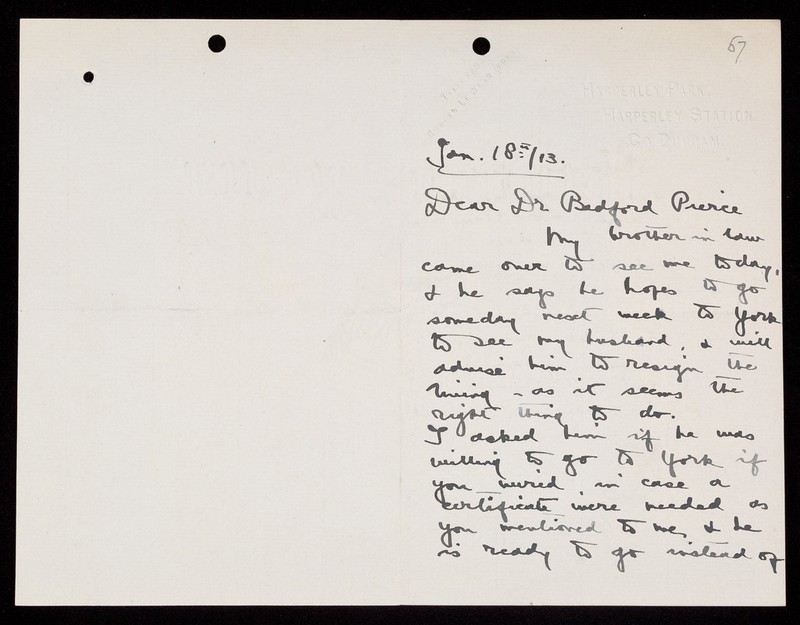 67
HARPERLEY PARK,
HARPERLEY STATION,
CO DURHAM.
Jan. 18th/13.
Dear Dr Bedford Pierce
My brother in law
came over to see me today,
& he says he hopes to go
someday next week to York
to see my husband, & will
advise him to resign the
living - as it seems the
right thing to do.
I asked him if he was
willing to go to York if
you wired in case a
certificate were needed as
you mentioned to me, & he
is ready to go instead of